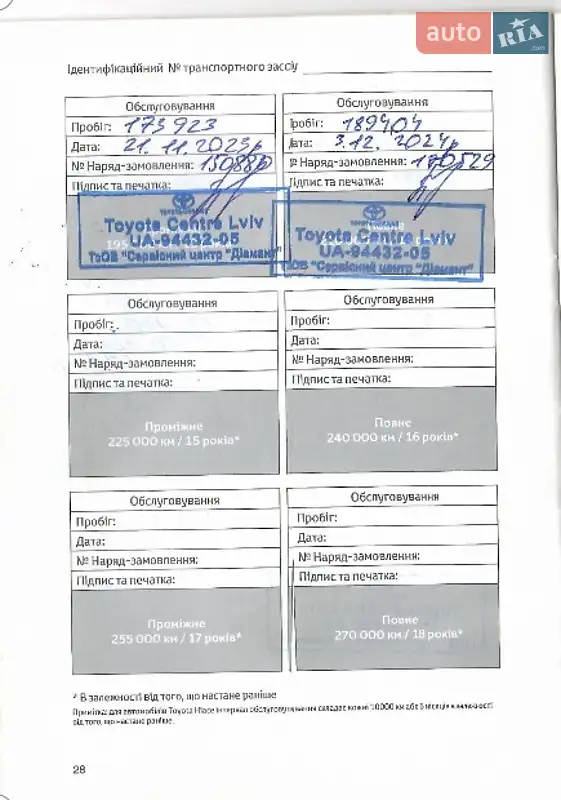 auto RIA .com
Ідентифікаційний № транспортного засобу
Обслуговування
Пробіг: 173 923
Дата: 21.11.2023р
№ Наряд-замовлення:
Підпис та печатка:
Toyota Centre Lviv
UA-94432-05
ТзОВ "Сервісний центр "Діамант"
Обслуговування
Пробіг: 189404
Дата: 3.12.2024р
№ Наряд-замовлення: 170529
Підпис та печатка:
Toyota Centre Lviv
UA-94432-05
ТзОВ "Сервісний центр "Діамант"
Обслуговування
Пробіг:
Дата:
№ Наряд-замовлення:
Підпис та печатка:
Проміжне
225 000 км / 15 років*
Обслуговування
Пробіг:
Дата:
№ Наряд-замовлення:
Підпис та печатка:
Повне
240 000 км / 16 років*
Обслуговування
Пробіг:
Дата:
№ Наряд-замовлення:
Підпис та печатка:
Проміжне
255 000 км / 17 років*
Обслуговування
Пробіг:
Дата:
№ Наряд-замовлення:
Підпис та печатка:
Повне
270 000 км / 18 років*
* В залежності від того, що настане раніше
Примітка: для автомобілів Toyota Hiace інтервал обслуговування складає кожні 10000 км або 6 місяців в залежності
від того, що настане раніше.
28